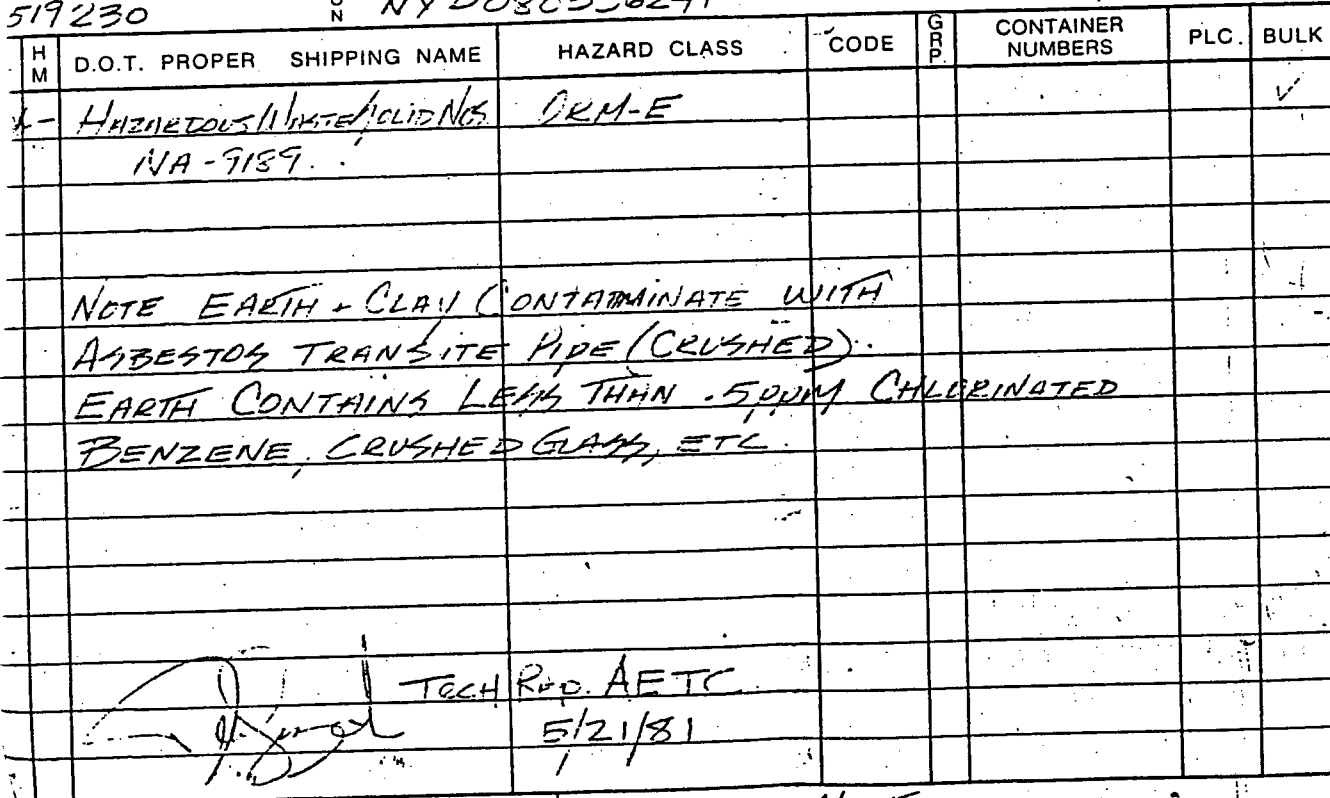 519230
HM D.O.T. PROPER SHIPPING NAME HAZARD CLASS CODE GRP. CONTAINER NUMBERS PLC. BULK
HAZARDOUS WASTE SOLID NOS ORM-E ✓
NA-9189.
NOTE EARTH + CLAY CONTATMINATE WITH
ASBESTOS TRANSITE PIPE (CRUSHED).
EARTH CONTAINS LESS THAN .5 ppM CHLORINATED
BENZENE, CRUSHED GLASS, ETC.
TECH REP. AETC
5/21/81